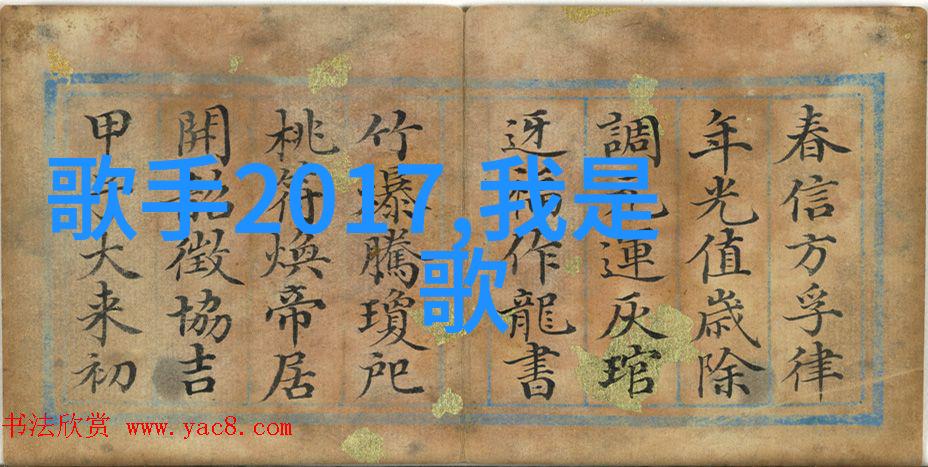 春信方孚律
年光值歲除
調元運灰琯
迓福作龍書
竹爆騰瓊戺
桃符煥帝居
開徵協吉
甲大来初
歌手2017,我是
歌
书法欣赏 www.yac8.com